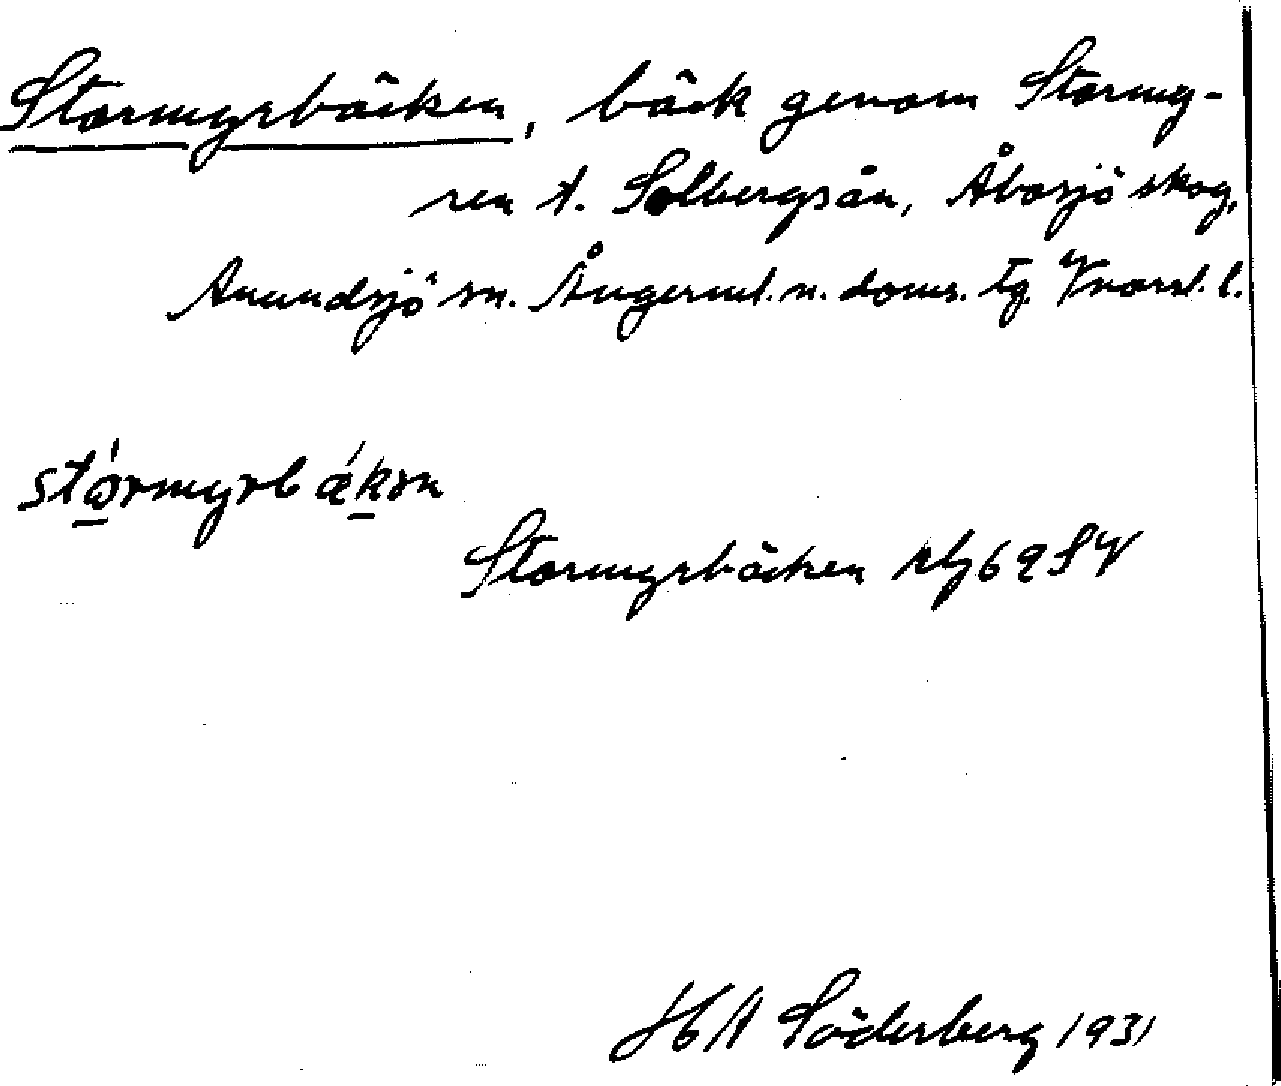 Stormyrbäcken, bäck genom Stormy-
ren t. Solbergsån, Åbosjö skog,
Anundsjö sn. Ångerml. n. doms. tg. Vnorrl. l.
stórmyrbǽkən
Stormyrbäcken rbg 69 SV
HA Söderberg 1931